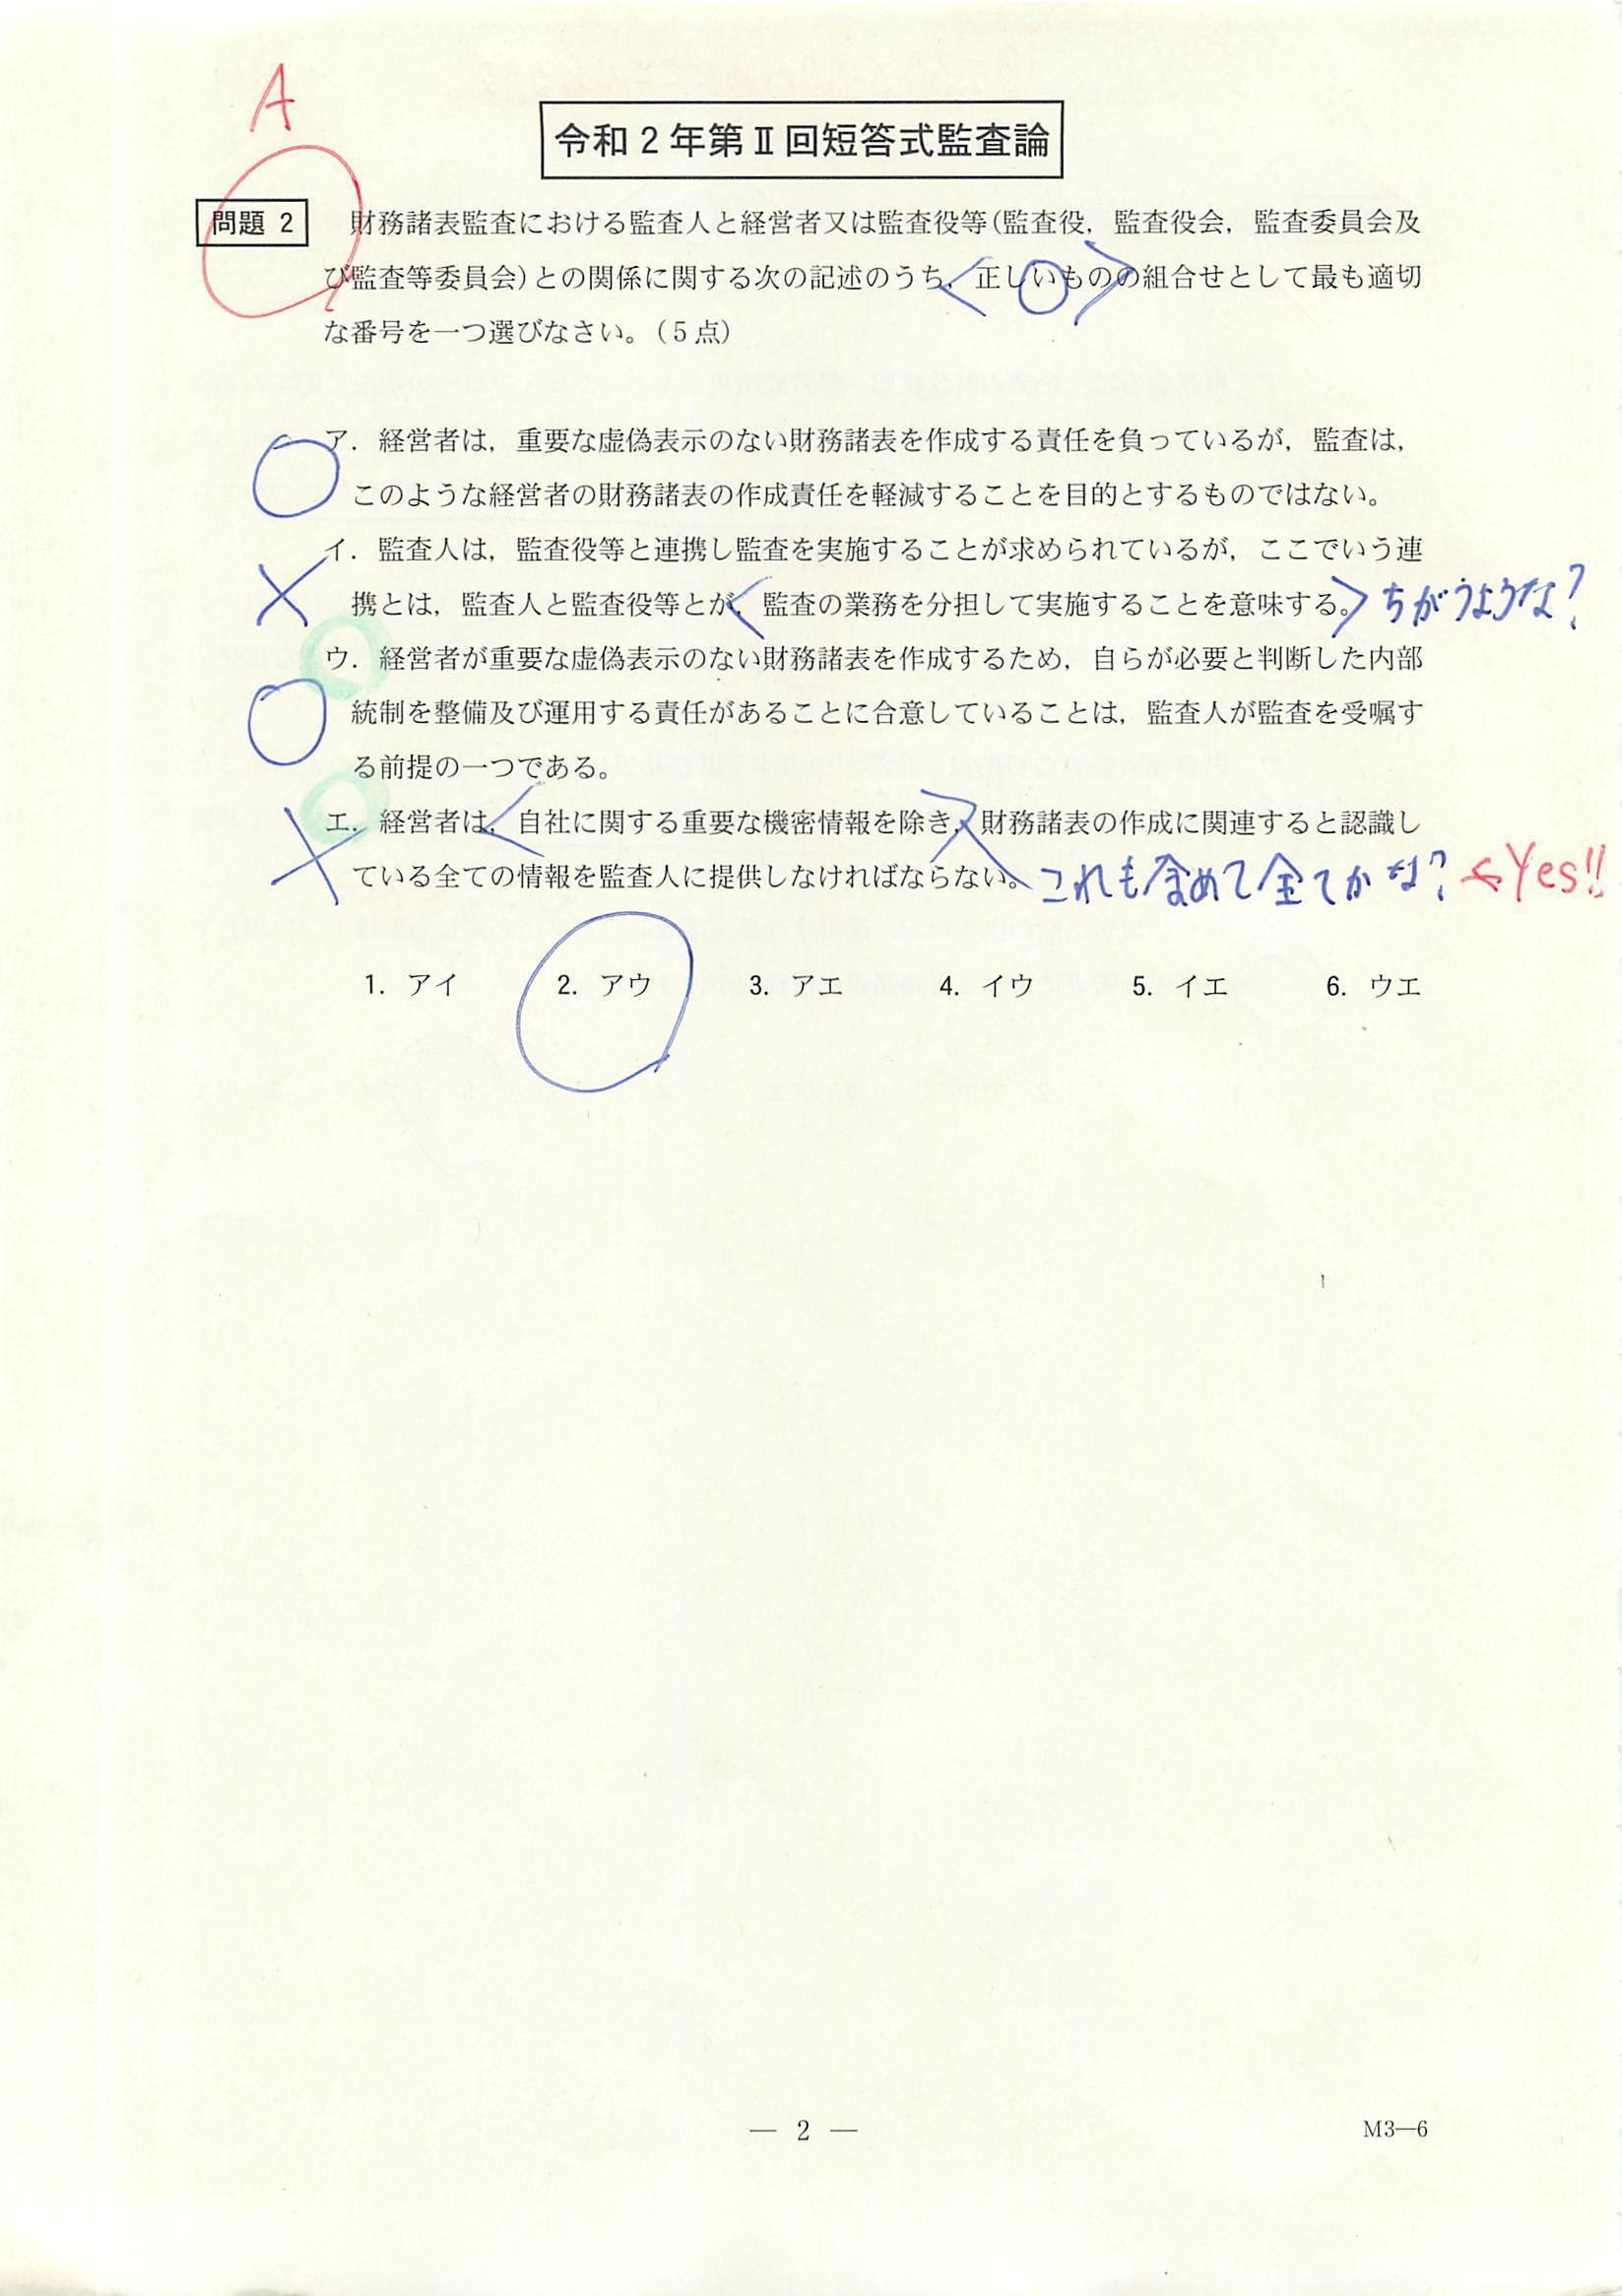 A
令和2年第Ⅱ回短答式監査論
問題 2 財務諸表監査における監査人と経営者又は監査役等(監査役，監査役会，監査委員会及
び監査等委員会)との関係に関する次の記述のうち，正しいものの組合せとして最も適切
な番号を一つ選びなさい。(5点)
ア．経営者は，重要な虚偽表示のない財務諸表を作成する責任を負っているが，監査は，
このような経営者の財務諸表の作成責任を軽減することを目的とするものではない。
イ．監査人は，監査役等と連携し監査を実施することが求められているが，ここでいう連
携とは，監査人と監査役等とが，監査の業務を分担して実施することを意味する。 ちがうような?
ウ．経営者が重要な虚偽表示のない財務諸表を作成するため，自らが必要と判断した内部
統制を整備及び運用する責任があることに合意していることは，監査人が監査を受嘱す
る前提の一つである。
エ．経営者は，自社に関する重要な機密情報を除き，財務諸表の作成に関連すると認識し
ている全ての情報を監査人に提供しなければならない。 これも含めて全てかな? ←Yes!!
1．アイ 2．アウ 3．アエ 4．イウ 5．イエ 6．ウエ
— 2 — M3—6